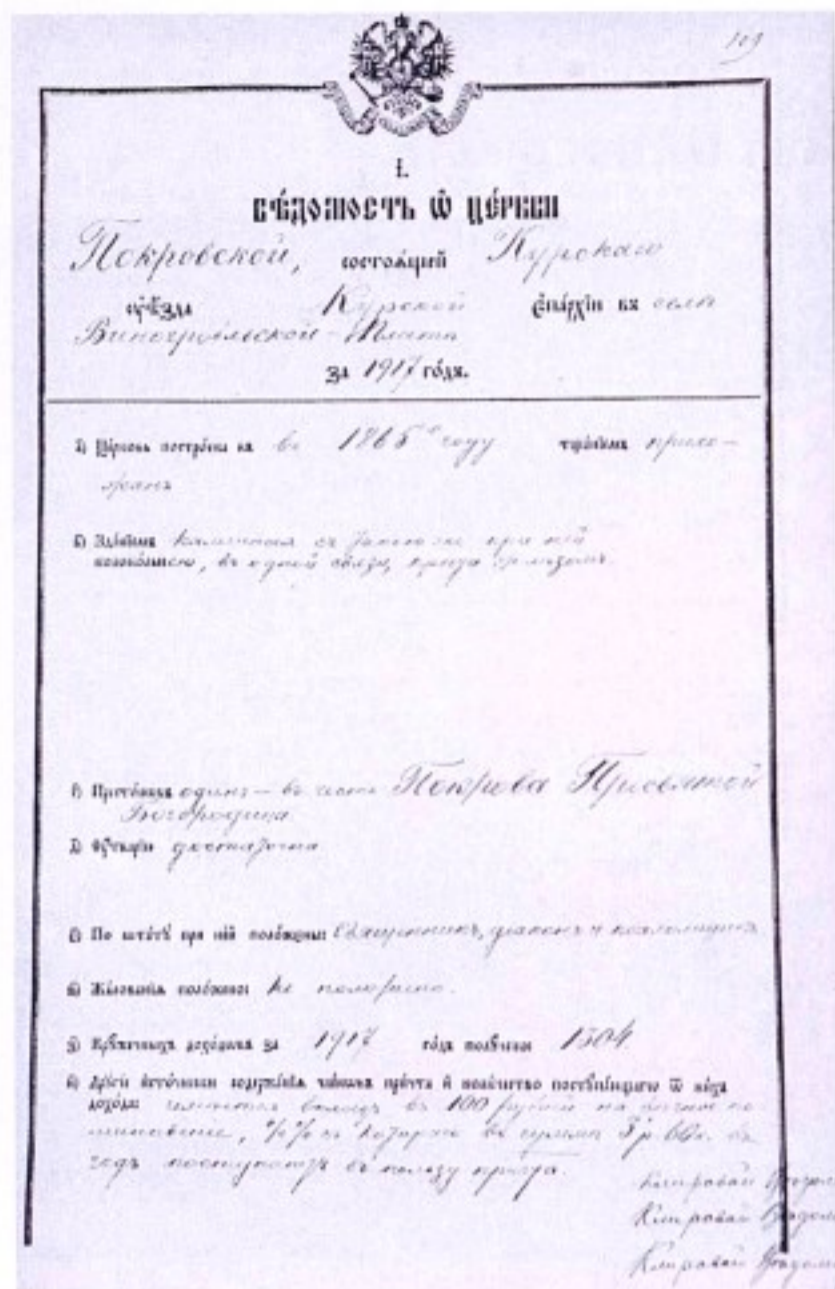 І.
ВѢДОМОСТЬ Ѿ ЦЕРКВИ
Покровской, состоѧщей Курскаго
ѹѣзда Курской Єпархїи въ селѣ
за 1917 годъ.
Церковь построена въ 1865 году тщанїемъ прихо-
жанъ
Зданїемъ каменная съ таковою же при ней
колокольнею, въ одной связи, крыта желѣзомъ.
Престоловъ одинъ – въ честь Покрова Пресвятой
Богородицы
Ѹтварїю достаточна
По штатѹ при ней положены: Священникъ, діаконъ и псаломщикъ
Жалованья положено: не положено.
Крѹжечныхъ доходовъ за 1917 годъ полѹчено 1304
Дрѹгїе источники содержанїѧ членовъ причта и количество постѹпившаго Ѿ нихъ
дохода: имѣется въ 100 рублей на вѣчное по-
миновеніе, %% съ котораго въ суммѣ 3 р. 60 к. въ
годъ поступаютъ въ пользу причта.